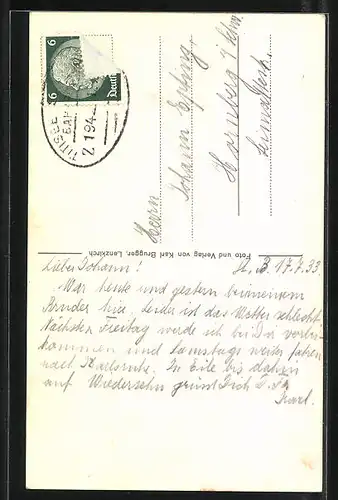 6
6
Deutsches
TITISEE
BAHN
Z 194
Herrn
Johann
Hornberg
Foto und Verlag von Karl Brugger, Lenzkirch
Lieber Johann! 17.7.33
War heute und gestern bei meinem
Bruder hier leider ist das Wetter schlecht
Nächsten Freitag werde ich bei Dir vorbei
kommen und Samstags weiter fahren
nach Karlsruhe. In Eile bis dahin
auf Wiedersehn grüsst Dich
Karl.